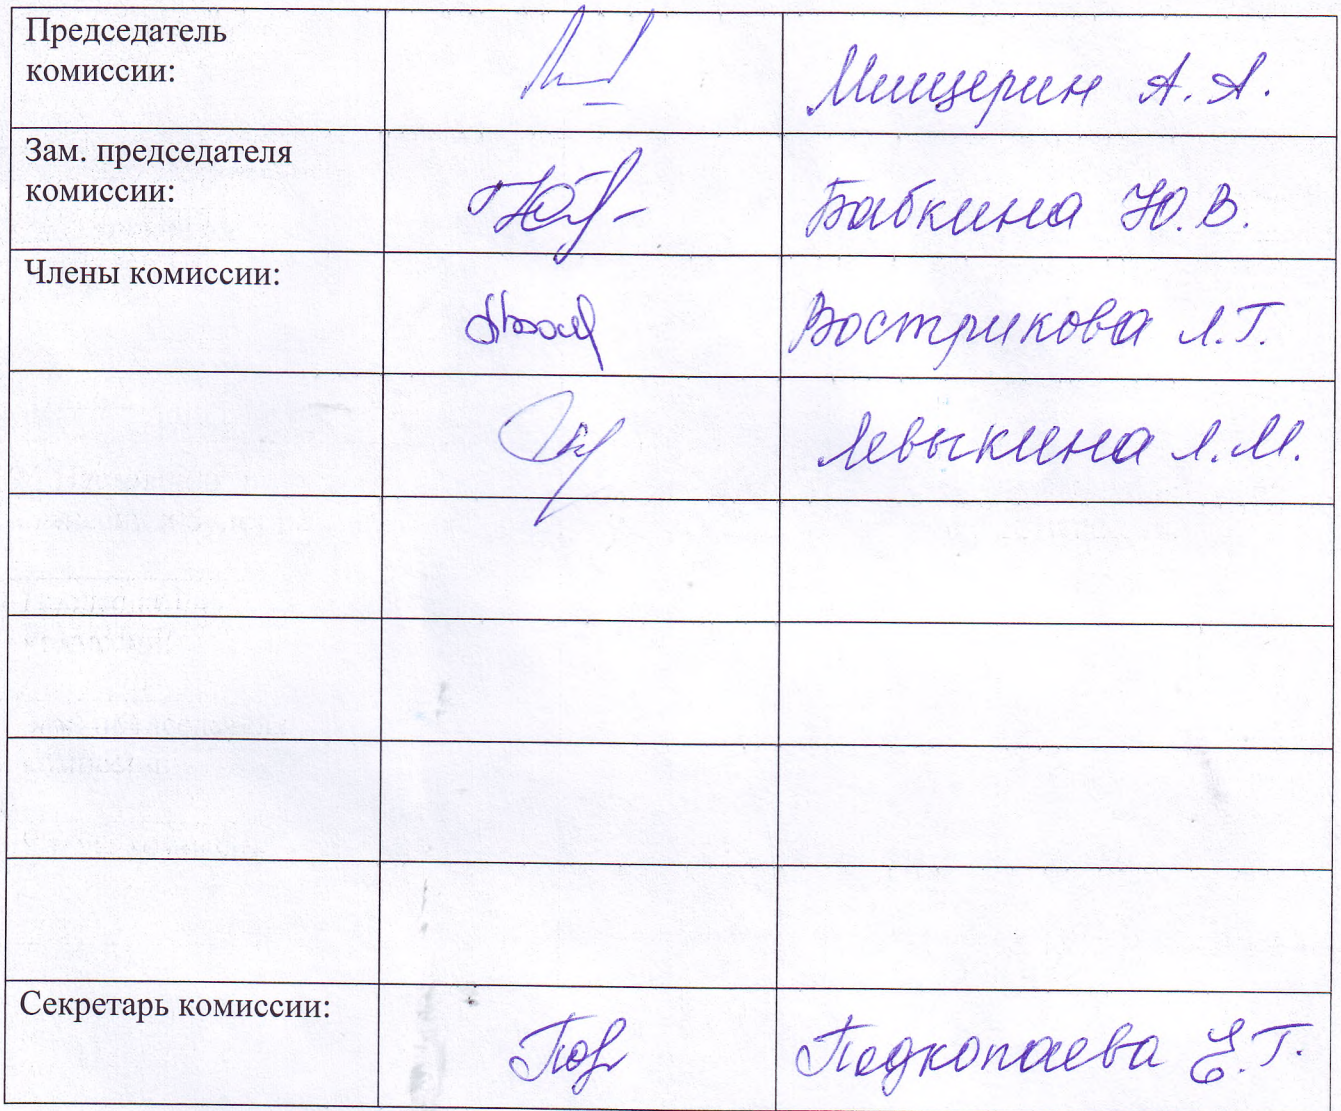 Председатель
комиссии:
Мищерин А. А.
Зам. председателя
комиссии:
Бабкина Ю. В.
Члены комиссии:
Вострикова Л.Г.
Левыкина Л. М.
Секретарь комиссии:
Подкопаева Е.Г.